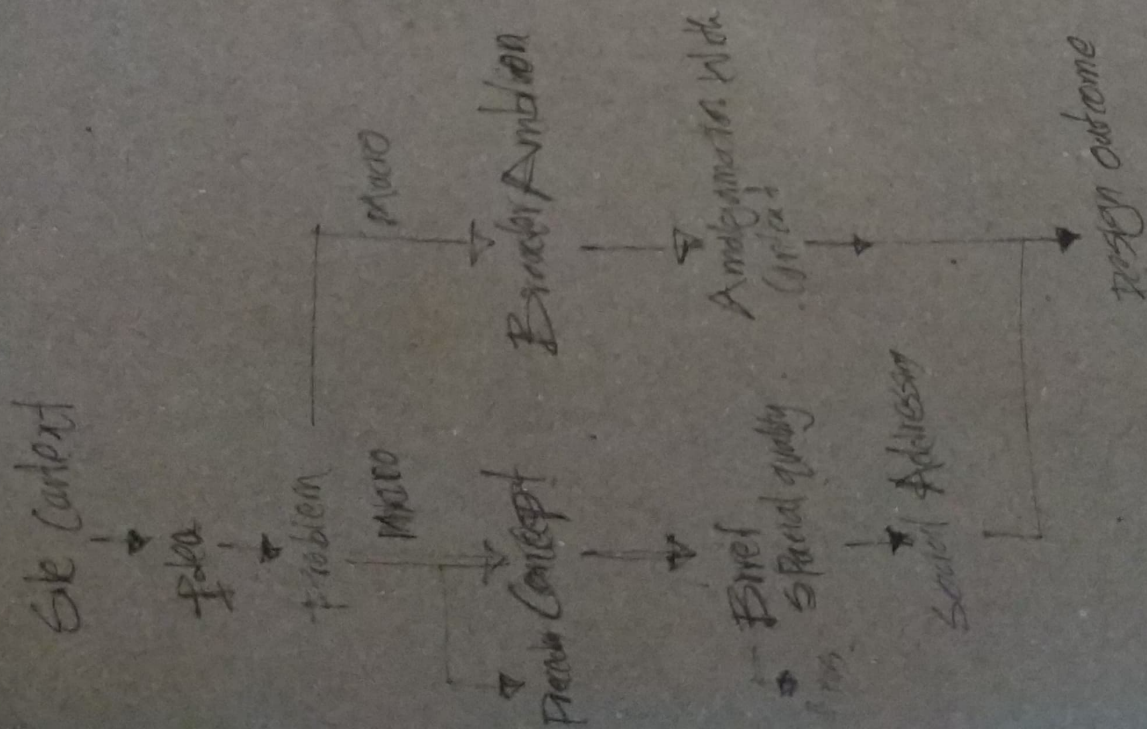 Site Context
Idea
Problem
Macro
Macro
Concept
Broader Ambition
Brief
Spatial quality
Amalgamation With
Context
Social Addressing
Design Outcome